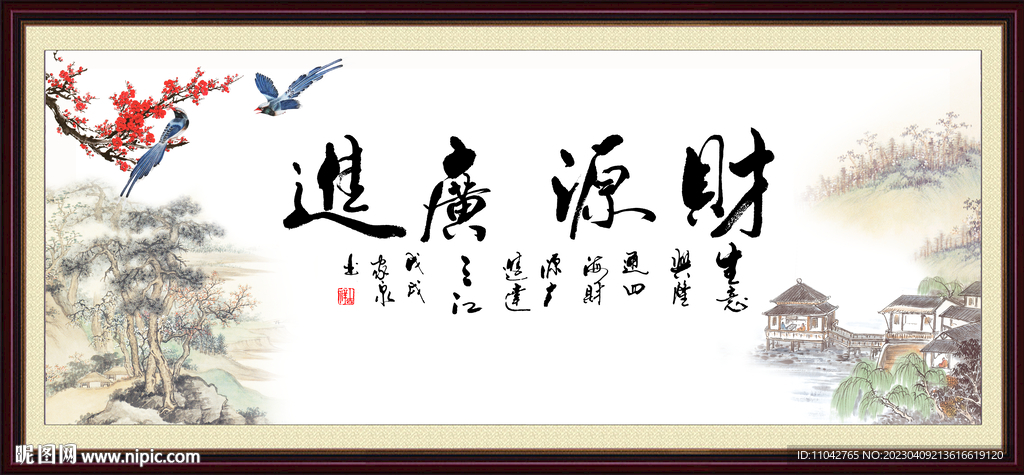 財源廣進
生意
興隆
通四
海財
源广
進達
三江
戊戌
家泉
书
昵图网 www.nipic.com
ID:11042765 NO:20230409213616619120